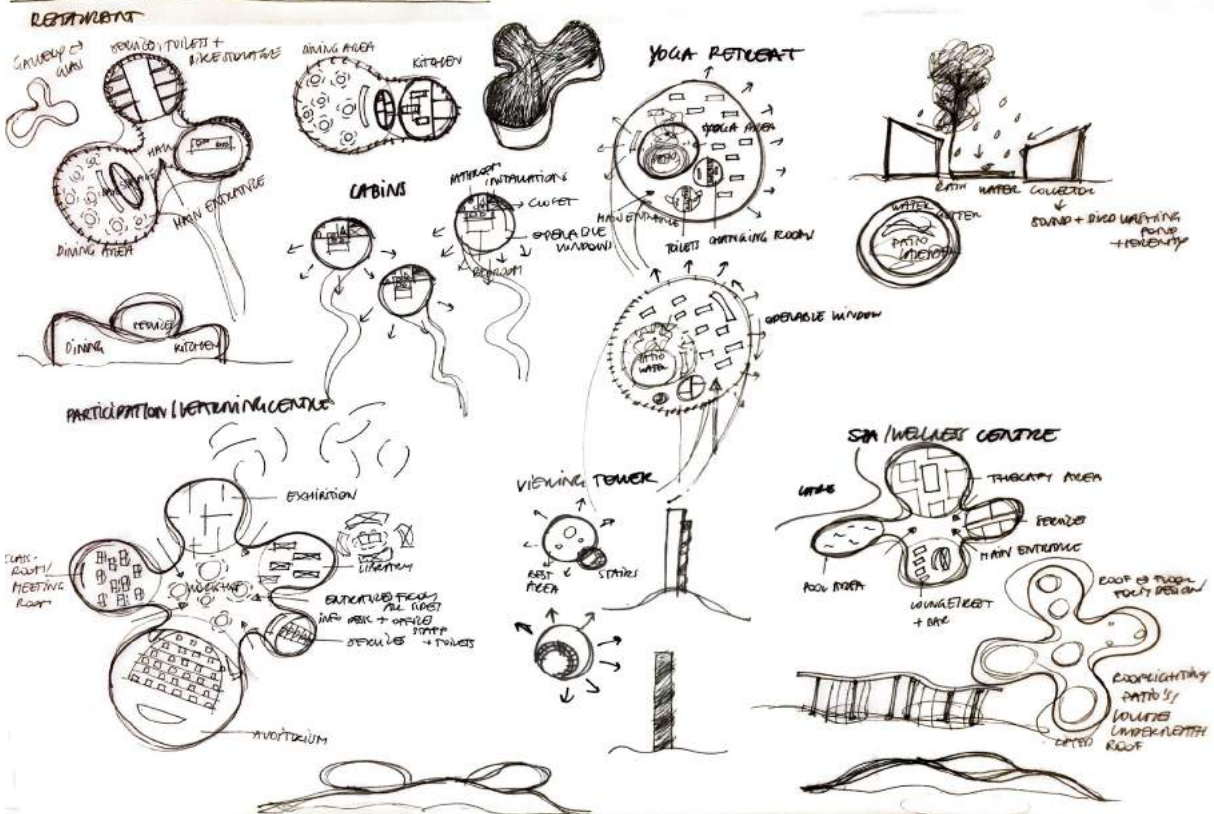 RESTAURANT
SERVICE, TOILETS +
BIKE STORAGE
DINING AREA
KITCHEN
MAIN ENTRANCE
DINING AREA
SERVICE
DINING
KITCHEN
CABINS
BATHROOM
INSTALLATION
CLOSET
OPERABLE
WINDOWS
BEDROOM
YOGA RETREAT
YOGA AREA
PATIO
MAIN ENTRANCE
TOILETS
CHANGING ROOM
OPERABLE WINDOW
PATIO
WATER
RAIN WATER COLLECTOR
SOUND + BIRD WASHING
POND
+ SERENITY
WATER
PATIO
PARTICIPATION/LEARNING CENTRE
EXHIBITION
CLASS-
ROOM/
MEETING
ROOM
LIBRARY
WORKSHOP
ENTRANCES FROM
ALL SIDES
INFO DESK + OFFICE
STAFF
SERVICES + TOILETS
AUDITORIUM
VIEWING TOWER
REST
AREA
STAIRS
SPA/WELLNESS CENTRE
THERAPY AREA
SERVICES
MAIN ENTRANCE
POOL AREA
LOUNGE/REST
+ BAR
ROOF
DESIGN
ROOFLIGHTING
PATIO'S/
VOLUME
UNDERNEATH
ROOF